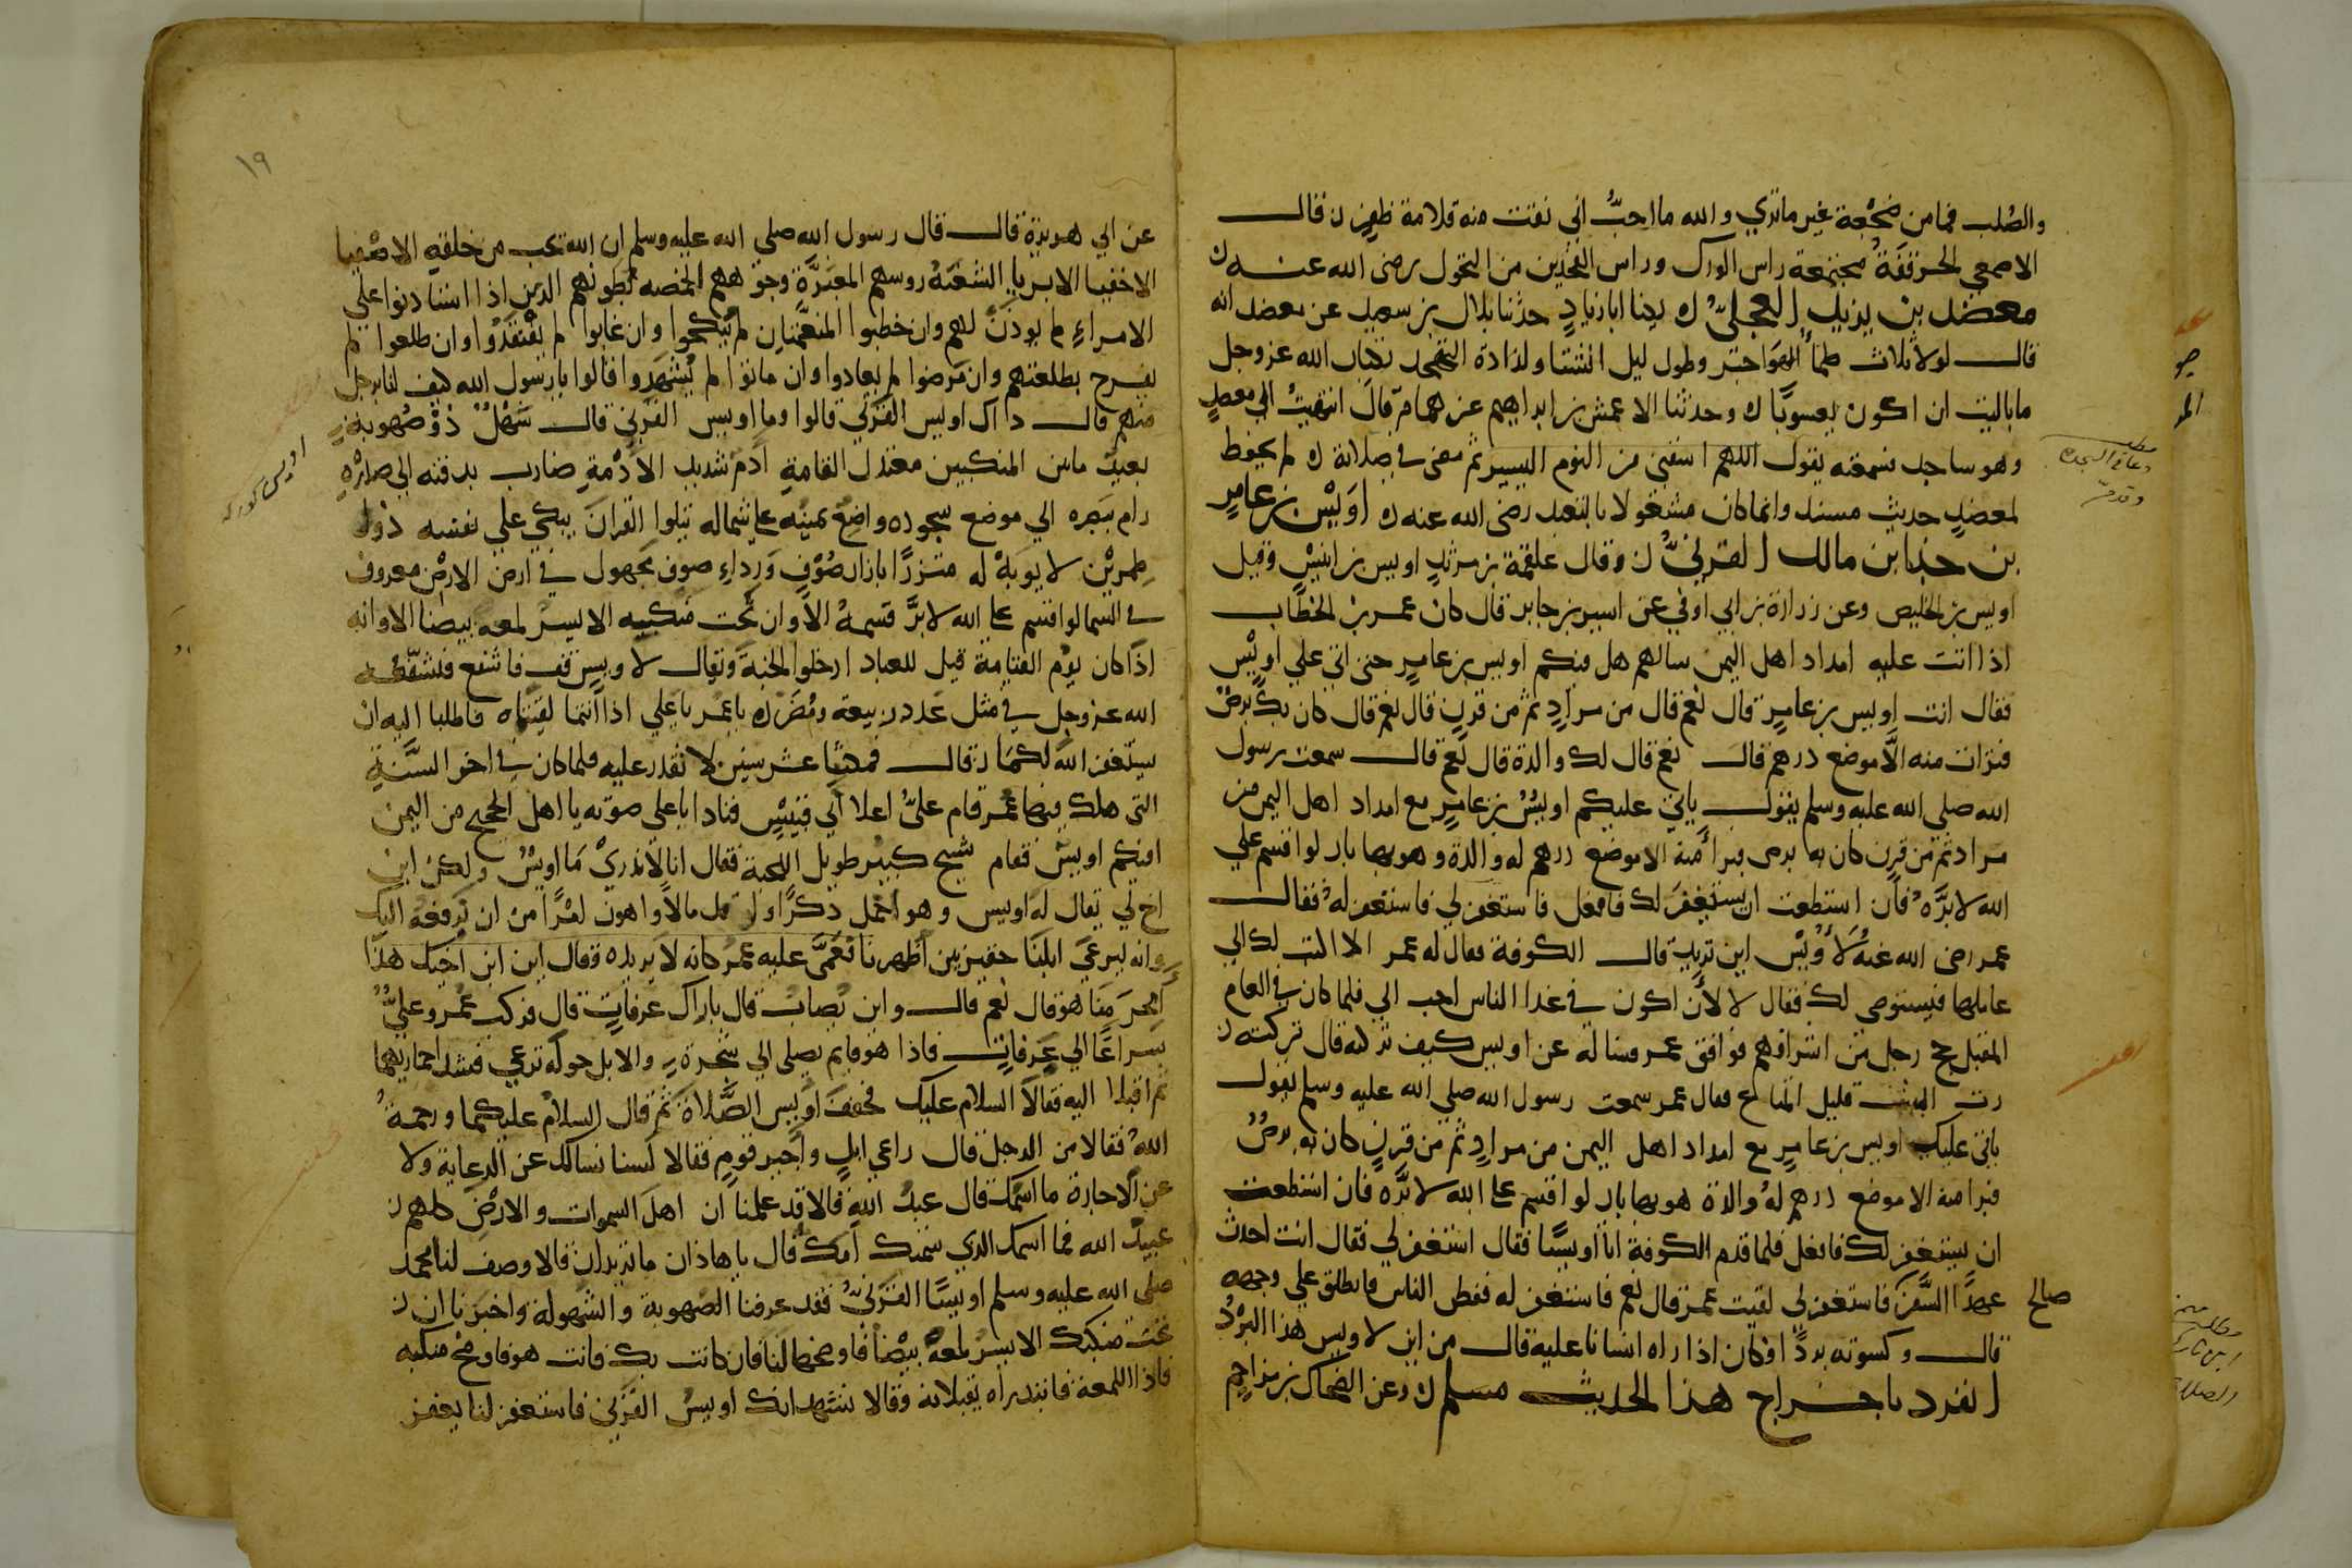 والصُلب فما من ضجْعة غير ما تري والله ما احبُّ اني نقتت منه قلامة ظفرن قال
الاصمعي الحرقفَةُ مجتمعة راس الورك وراس الفخذين من التحول رضى الله عنه ك
معضد بن يزيد العجليُّ ك يكنا ابا زيادٍ حدثنا بلال بن سعيد عن معضد انه
قال لولا ثلاث ظمأُ الهَواجر وطول ليل الشتا ولذاذة التهجد بكتاب الله عز وجل
ما باليت ان اكون يعسوبًا ك وحدثنا الاعمش بن ابراهيم عن همام قال انتهيت الي معضدٍ
وهو ساجد فسمعته يقول اللهم اشفني من النوم اليسير ثم مضى في صلاته ك لم يحفظ
لمعضدٍ حديث مسند وانما كان مشغولا بالتعبد رضى الله عنه ك اوَيْس بن عامرٍ
بن جزا بن مالك القرنيُّ ن وقال علقمة بن مرثدٍ اويس بن انيْسٍ وقيل
اويس بن الخليص وعن زرارة بن ابي اوفي عن اسير بن جابر قال كان عمر بن الخطاب
اذا اتت عليه امداد اهل اليمن سالهم هل فيكم اويس بن عامرٍ حتى اتى علي اويْس
فقال انت اويس بن عامرٍ قال نعم قال من مرادٍ ثم من قرنٍ قال نعم قال كان بك برصٌ
فبرات منه الَّا موضع درهم قال نعم قال لك والدة قال نعم قال سمعت رسول
الله صلى الله عليه وسلم يقول ياتي عليكم اويسُ بن عامرٍ مع امداد اهل اليمن من
مراد ثم من قرن كان به برص فبرأ منه الا موضع درهم له والدة وهو بها بار لو اقسم علي
الله لابرَّه فان استطعت ان يستغفرَ لك فافعل فاستغفر لي فاستغفر لهُ فقال
عمر رضى الله عنهُ لأُوَيْس اين تريد قال الكوفة فقال له عمر الا اكتب لك الي
عاملها فيستوصى لك فقال لا لأن اكون في غبرا الناس احب الي فلما كان في العام
المقبل حج رجل من اشرافهم فوافق عمر فساله عن اويس كيف تركته قال تركته ن
رث البيت قليل المتاع فقال عمر سمعت رسول الله صلي الله عليه وسلم يقول
ياتي عليك اويس بن عامرٍ مع امداد اهل اليمن من مرادٍ ثم من قرنٍ كان به برصٌ
فبرا منه الا موضع درهم لهُ والدة هو بها بار لو اقسم علي الله لابَرَّه فان استطعت
ان يستغفر لك فافعل فلما قدم الكوفة اتا اويسًا فقال استغفر لي فقال انت احدث
عهدًا السَّفرَ فاستغفر لي لقيت عمر قال نعم فاستغفر له ففطن الناس فانطلق علي وجهه
صالح
قال وكسوته بردًا فكان اذا راه انسانا عليه قال من اين لاويس هذا البُرْدُ
انفرد باخراج هذا الحديث مسلم ك وعن الضحاك بن مزاحم
١٩
عن ابي هريرة قال قال رسول اللهِ صلى الله عليه وسلم ان الله يحب من خلقهِ الاصْفيا
الاخفيا الابريا الشعَثهُ روسهم المغبرَّةِ وجوههم الخمصه بُطونهم الذين اذا استادنوا علي
الامراءِ لم يوذنَ لهم وان خطبوا المنعَّمات لم يُنكحوا وان غابوا لم يفْتقدُوا وان طلعوا لم
يفرح بطلعتهم وان مَرضوا لم يعادوا وان ماتوا لم يُشهدوا قالوا يا رسول الله كيف لنا برجل
منهم قال داك اويس القَرَني قالوا وما اويس القرني قال شَهْلٌ ذوْ صُهوبةٍ
بعيدُ ما بين المنكبين معتدل القامةِ آدمُ شديد الادْمةِ ضارب بدقنه الي صدْرهِ
رام ببَصره الي موضع سجوده واضع يمينه علي شماله يتلوا القرانَ يبكي علي نفسه ذوا
طِمريْن لا يوبَهُ له متزرًا بازار صُوْفٍ وَرِداءِ صوف مجهول في ارض الارض معروف
في السما لو اقسم علي الله لابرَّ قسمهُ الا وان تحت منكبه الايسر لمعه بيضا الا وانه
اذا كان يوْم القيامة قيل للعباد ادخلوا الجنة ويقال لاويس قف فاشفع فيشفّعه
الله عز وجل في مثل عَدد ربيعة ومُضَر ك يا عمر يا علي اذا انتما لقيتماه فاطلبا اليه ان
يستغفر اللهَ لكمَا ن قال فمكثا عشر سنين لا تقدر عليه فلما كان في اخر السَّنةِ
التى هلك فيها عُمر قام عليُّ اعلا ابي قبَيْسٍ فنادا باعلي صوته يا اهل الحجيج من اليمن
افيكم اويسٌ فقام شيخ كبير طويل اللحية فقال انا لا ندريْ مَا اويْسُ ولكنْ ابن
اخ لي يقال له اويس وهو اخمل ذكرًا واقل مالا واهون امْرًا من ان نرفعهُ اليك
وانه ليرعَي ابلنَا حقير بين اظهرنا فعَمَّى عليه عمر كانه لا يريده وقال اين ابن اخيك هذا
أَبِحَرَمنا هو قال نعم قال واين يُصابُ قال باراك عرفات قال فركب عُمر وعليُّ
سِراعًا الي عَرفاتٍ فاذا هو قايم يصلى الي شجرةٍ والابل حوله ترعي فشدا حماريهما
ثم اقبلا اليه فقالا السلام عليك فخففَ اويس الصَّلاةَ ثم قال السلام عليكما ورحمةُ
اللهُ فقالا من الرجل قال راعي ابلٍ واجير قومٍ فقالا لسنا نسالك عن الرعاية ولا
عن الاجارة ما اسمكَ قال عبدُ اللهِ قالا قد علمنا ان اهل السموات والارضِ كلهم ن
عبيدُ الله فما اسمك الذي سمتك امك قال يا هاذان ما تريدان قالا وصف لنا محمد
صلى الله عليه وسلم اويسًا القرَنيُّ فقد عرفنا الصهوبة والشهولة واخبرنا ان ن
تحت منكبك الايسر لمعةً بيْضا فاوضحها لنا فان كانت بك فانت هو فاوضح منكبه
فاذا اللمعة فابتدراه يقبلانه وقالا نشهد انك اويسُ القرَني فاستغفر لنا يغفر